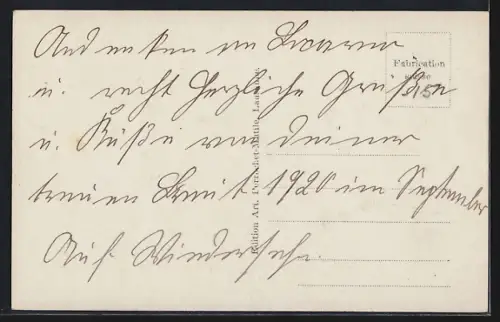 Andenken an Locarno
u. recht herzliche Grüßen
u. Küße von deiner
treuen Braut 1920 im September
Auf Wiedersehn.
Fabrication
Edition Art. Perrochet-Matile, Lausanne.